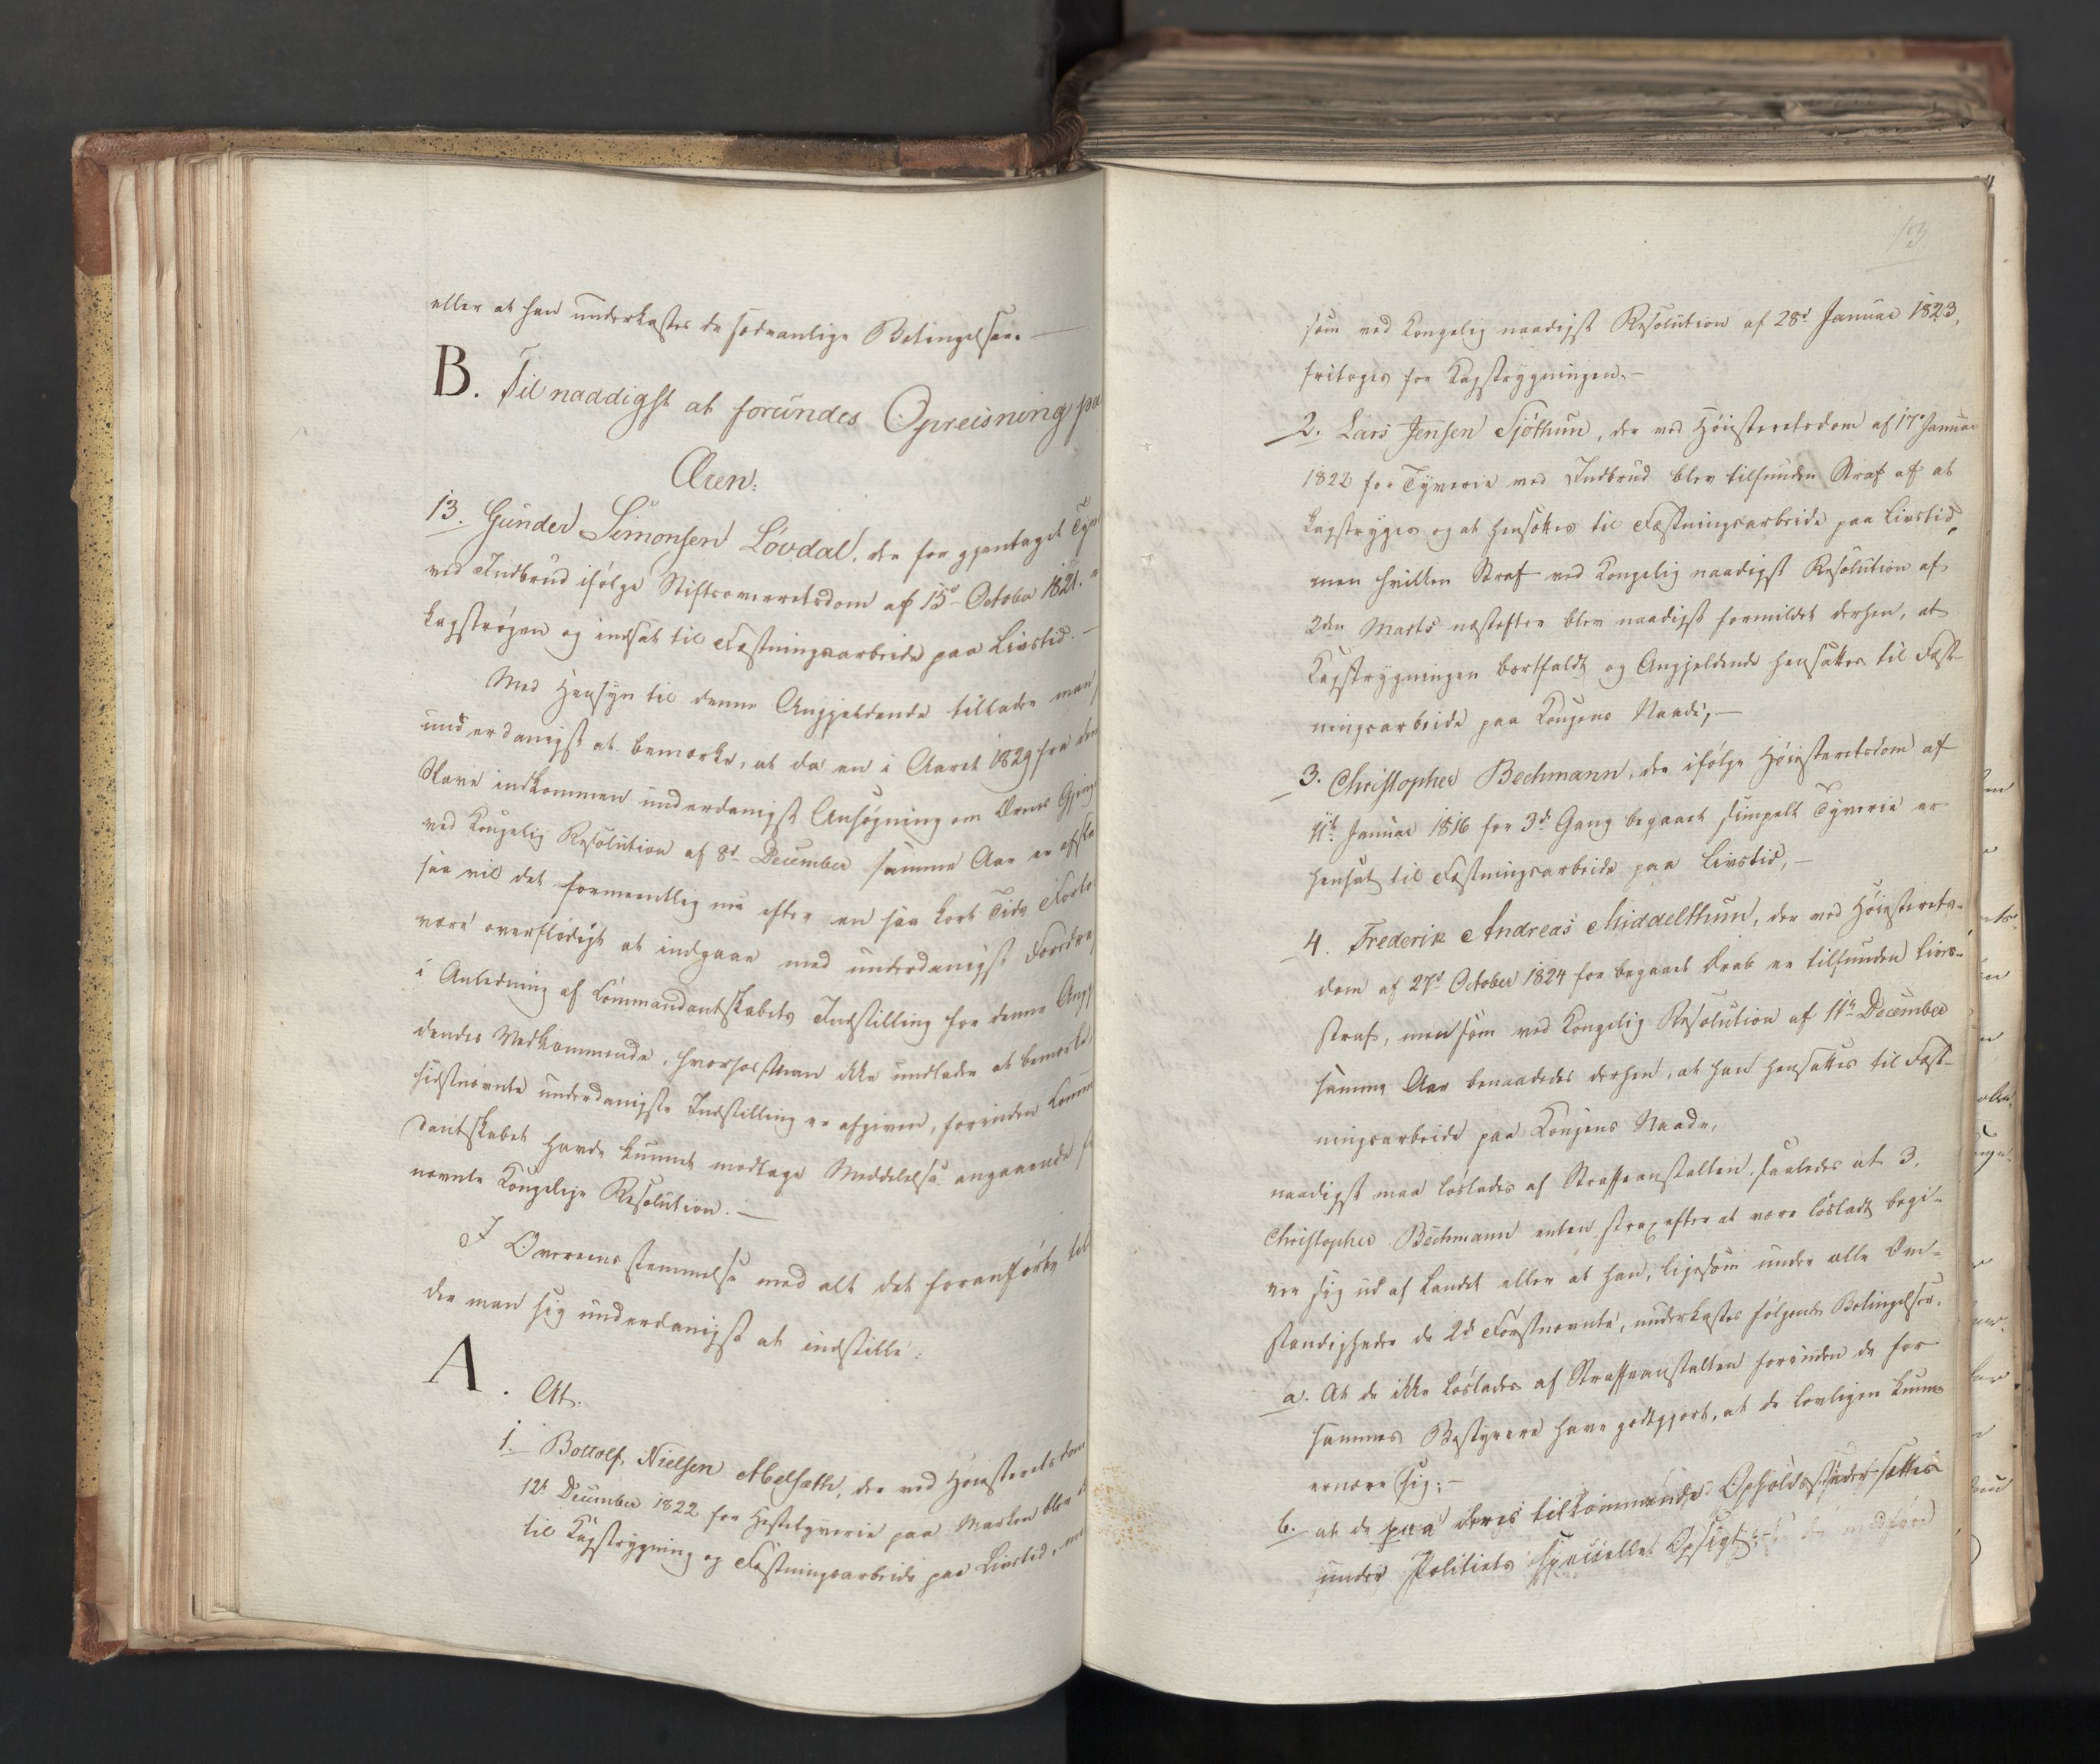 eller at han underkastes de sædvanlige Betingelser. —
B. Til naadigst at forundes Opreisning pa
Æren:
13. Gunder Simonsen Løvdal, der for gjentaget Tyve
ved Indbrud ifølge Stiftsoverretsdom af 15de October 1821. er
kagstrøgen og indsat til Fæstningsarbeide paa Livstid. —
Med Hensyn til denne Angjeldende tillader man
underdanigst at bemærke, at da en i Aaret 1829 fra den
Slave indkommen underdanigst Ansøgning om Ærens Gjen
ved Kongelig Resolution af 8de December samme Aar er afsla
saa vil det formeentlig nu efter en saa kort Tids Forlø
være overflødigt at indgaae med underdanigst Foredra
i Anledning af Commandantskabets Indstilling for denne Angj
dendes Vedkommende, hvorhos man ikke undlader at bemærke,
sidstnævnte underdanigste Indstilling er afgiven, forinden Comm
dantskabet havde kunnet modtage Meddelelse angaaende f
nævnte Kongelige Resolution. —
I Overeensstemmelse med alt det foranførte til
der man sig underdanigst at indstille:
A. At.
1. Bottolf Nielsen Abelsæth, der ved Høiesterets dom
12te December 1822 for Hestetyverie paa Marken blev d
til Kagstrygning og Fæstningsarbeide paa Livstid, me
13
som ved Kongelig naadigst Resolution af 28de Januar 1823,
fritoges for Kagstrygningen, —
2. Lars Jensen Sjøthun, der ved Høiesteretsdom af 17de Januar
1822 for Tyverie ved Indbrud blev tilfunden Straf af at
kagstryges og at hensættes til Fæstningsarbeide paa Livstid,
men hvilken Straf ved Kongelig naadigst Resolution af
2den Marts næstefter blev naadigst formildet derhen, at
Kagstrygningen bortfaldt og Angjeldende hensattes til Fæst-
ningsarbeide paa Kongens Naade, —
3. Christopher Bechmann, der ifølge Høiesteretsdom af
11te Januar 1816 for 3de Gang begaaet simpelt Tyverie er
hensat til Fæstningsarbeide paa Livstid, —
4. Frederik Andreas Middelthun, der ved Høiesterets-
dom af 27de October 1824 for begaaet Drab er tilfunden Livs-
straf, men som ved Kongelig Resolution af 11te December
samme Aar benaadedes derhen, at han hensattes til Fæst-
ningsarbeide paa Kongens Naade,
naadigst maa løslades af Straffeanstalten, saaledes at 3.
Christopher Bechmann enten strax efter at være løsladt begi-
ver sig ud af Landet eller at han, ligesom under alle Om-
stændigheder de 2de Førstnævnte, underkastes følgende Betingelser.
a. At de ikke løslades af Straffeanstalten forinden de for
sammes Bestyrere have godtgjort, at de lovligen kunne
ernære sig; —
b. at de paa deres tilkommende Opholdssteder sættes
under Politiets specielle Opsigt; —